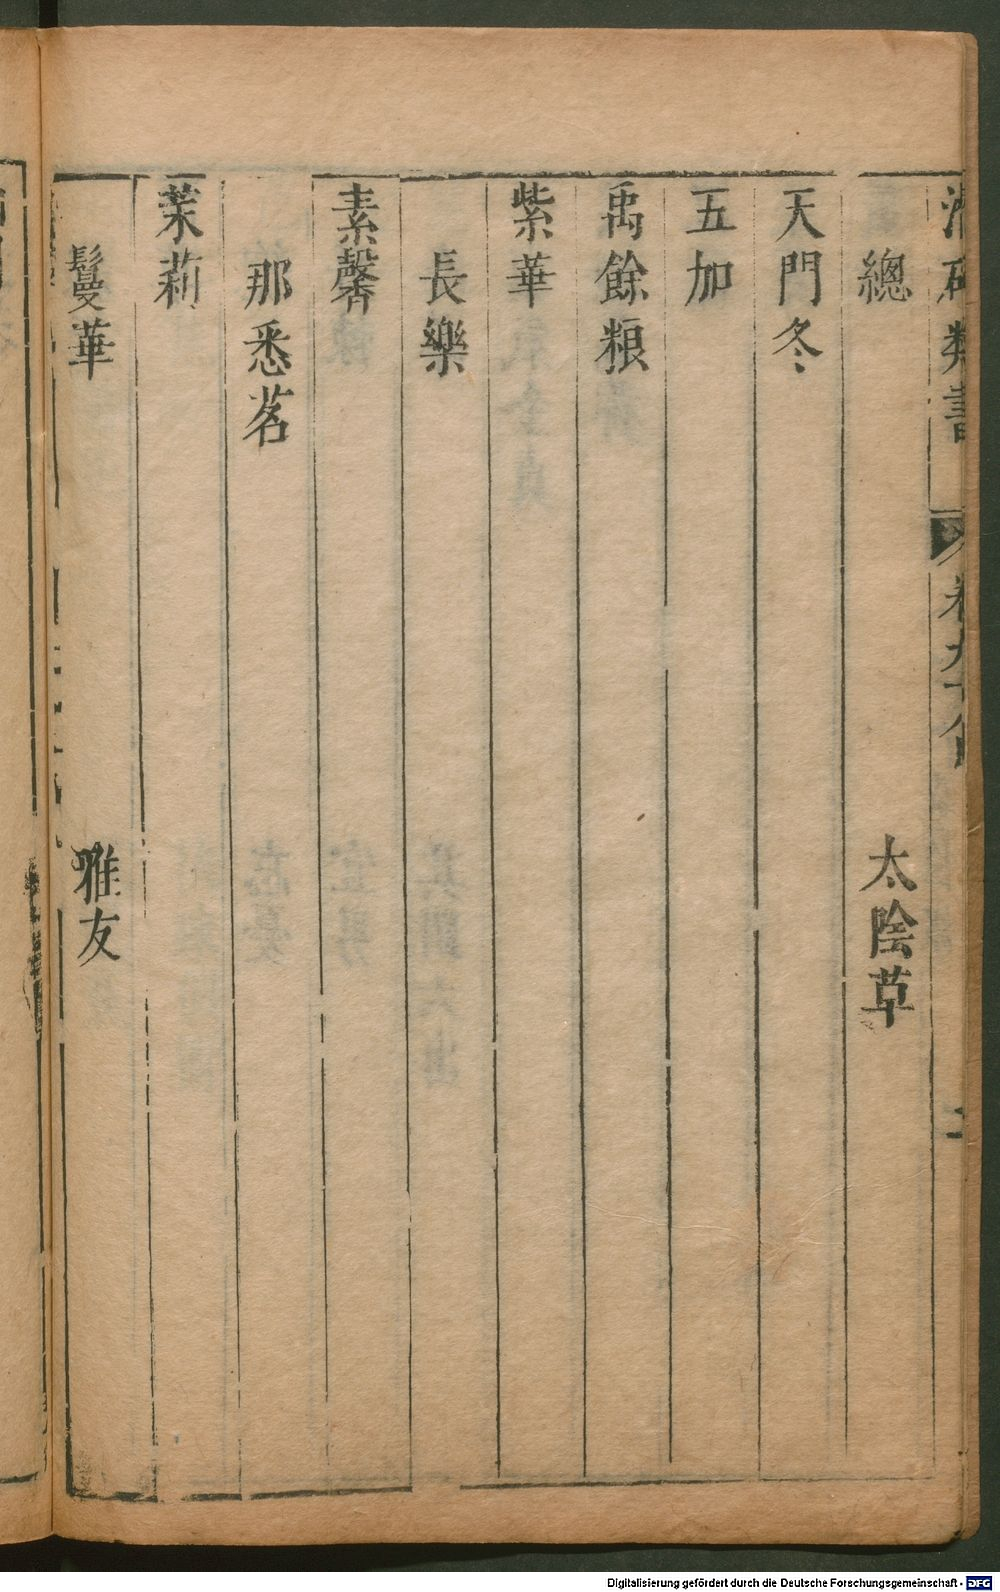 類書
總 太陰草
天門冬
五加
禹餘粮
紫華
長樂
素馨
那悉茗
茉莉
鬘華 雅友
Digitalisierung gefördert durch die Deutsche Forschungsgemeinschaft - DFG